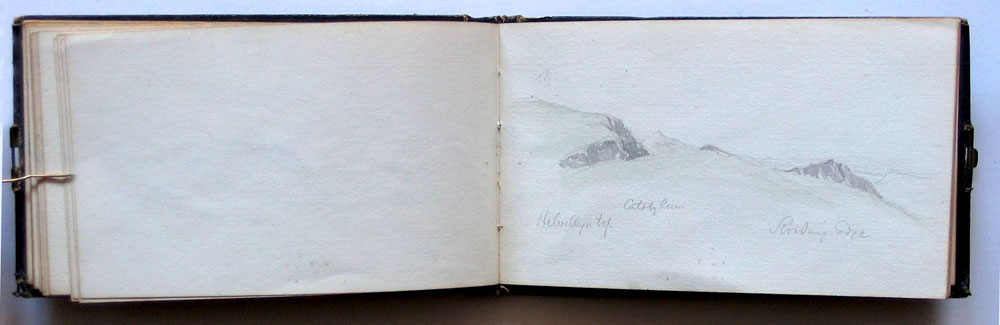 Helvellyn top
Catsty Cam
Striding Edge